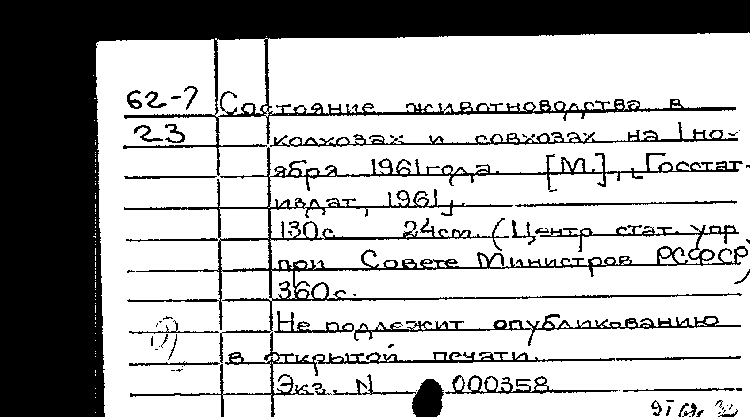 62-7 Состояние животноводства в
23 колхозах и совхозах на 1 но-
ября 1961 года. [М.], "Госстат-
издат", 1961.
130 с. 24 см. (Центр. стат. упр.
при Совете Министров РСФСР)
360 с.
Не подлежит опубликованию
в открытой печати.
Экз. N 000358